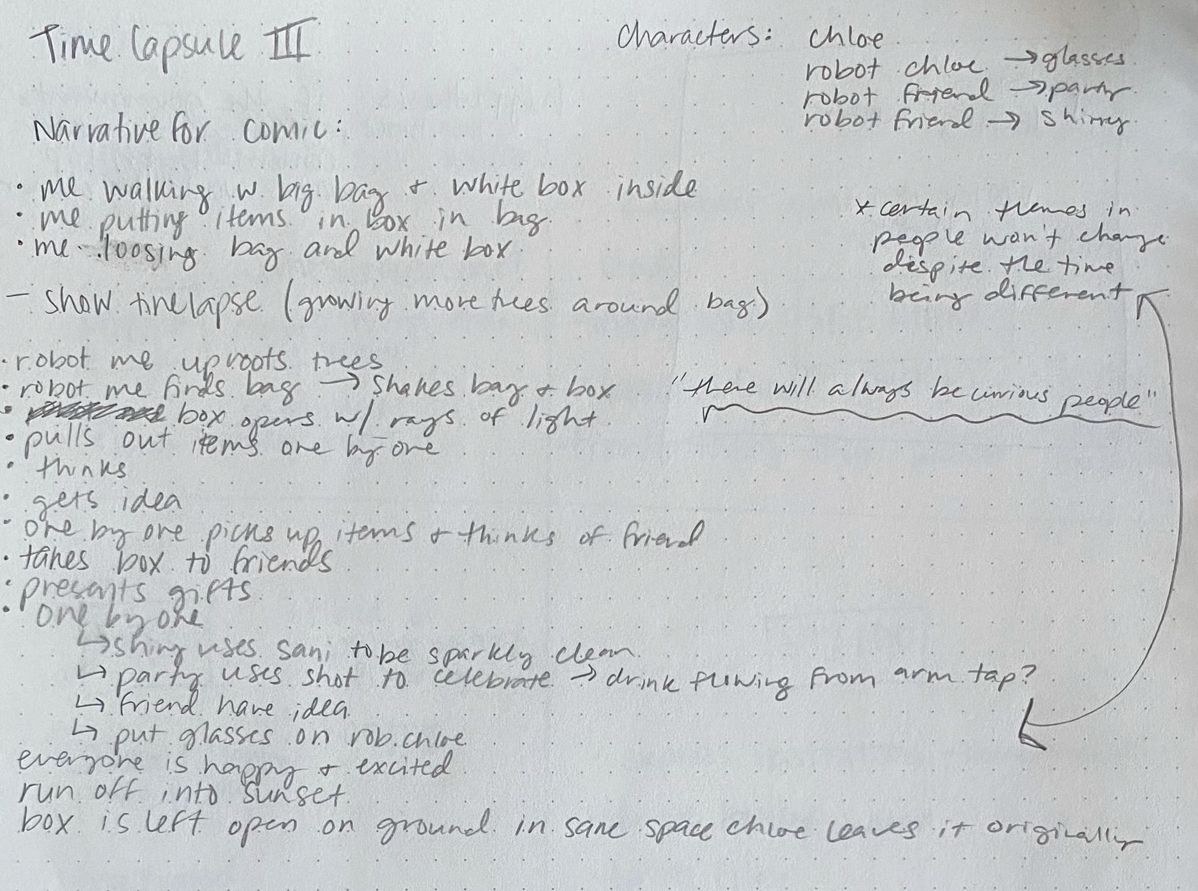 Time Capsule III
Characters: chloe
robot chloe → glasses
robot friend → party
robot friend → shiny
Narrative for comic:
• me walking w big bag + white box inside
• me putting items in box in bag
• me loosing bag and white box
* certain themes in
people won't change
despite the time
being different
— show timelapse (growing more trees around bag)
• robot me uproots trees
• robot me finds bag → shakes bag + box
"there will always be curious people"
• box opens w/ rays of light
• pulls out items one by one
• thinks
• gets idea
• one by one picks up items + thinks of friend
• takes box to friends
• presents gifts
• one by one
↳ shiny uses sani to be sparkly clean
↳ party uses shot to celebrate → drink flowing from arm tap?
↳ friend have idea
↳ put glasses on rob.chloe
everyone is happy + excited
run off into sunset
box is left open on ground in same space chloe leaves it originally